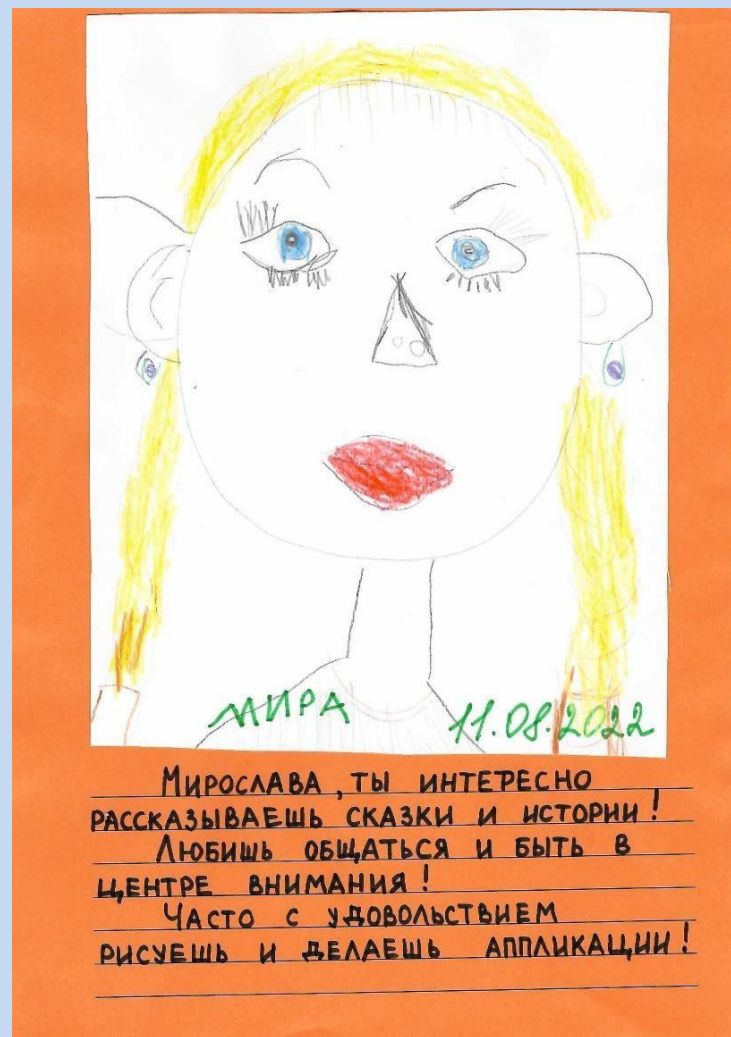 МИРА
11.08.2022
МИРОСЛАВА, ТЫ ИНТЕРЕСНО
РАССКАЗЫВАЕШЬ СКАЗКИ И ИСТОРИИ!
ЛЮБИШЬ ОБЩАТЬСЯ И БЫТЬ В
ЦЕНТРЕ ВНИМАНИЯ!
ЧАСТО С УДОВОЛЬСТВИЕМ
РИСУЕШЬ И ДЕЛАЕШЬ АППЛИКАЦИИ!